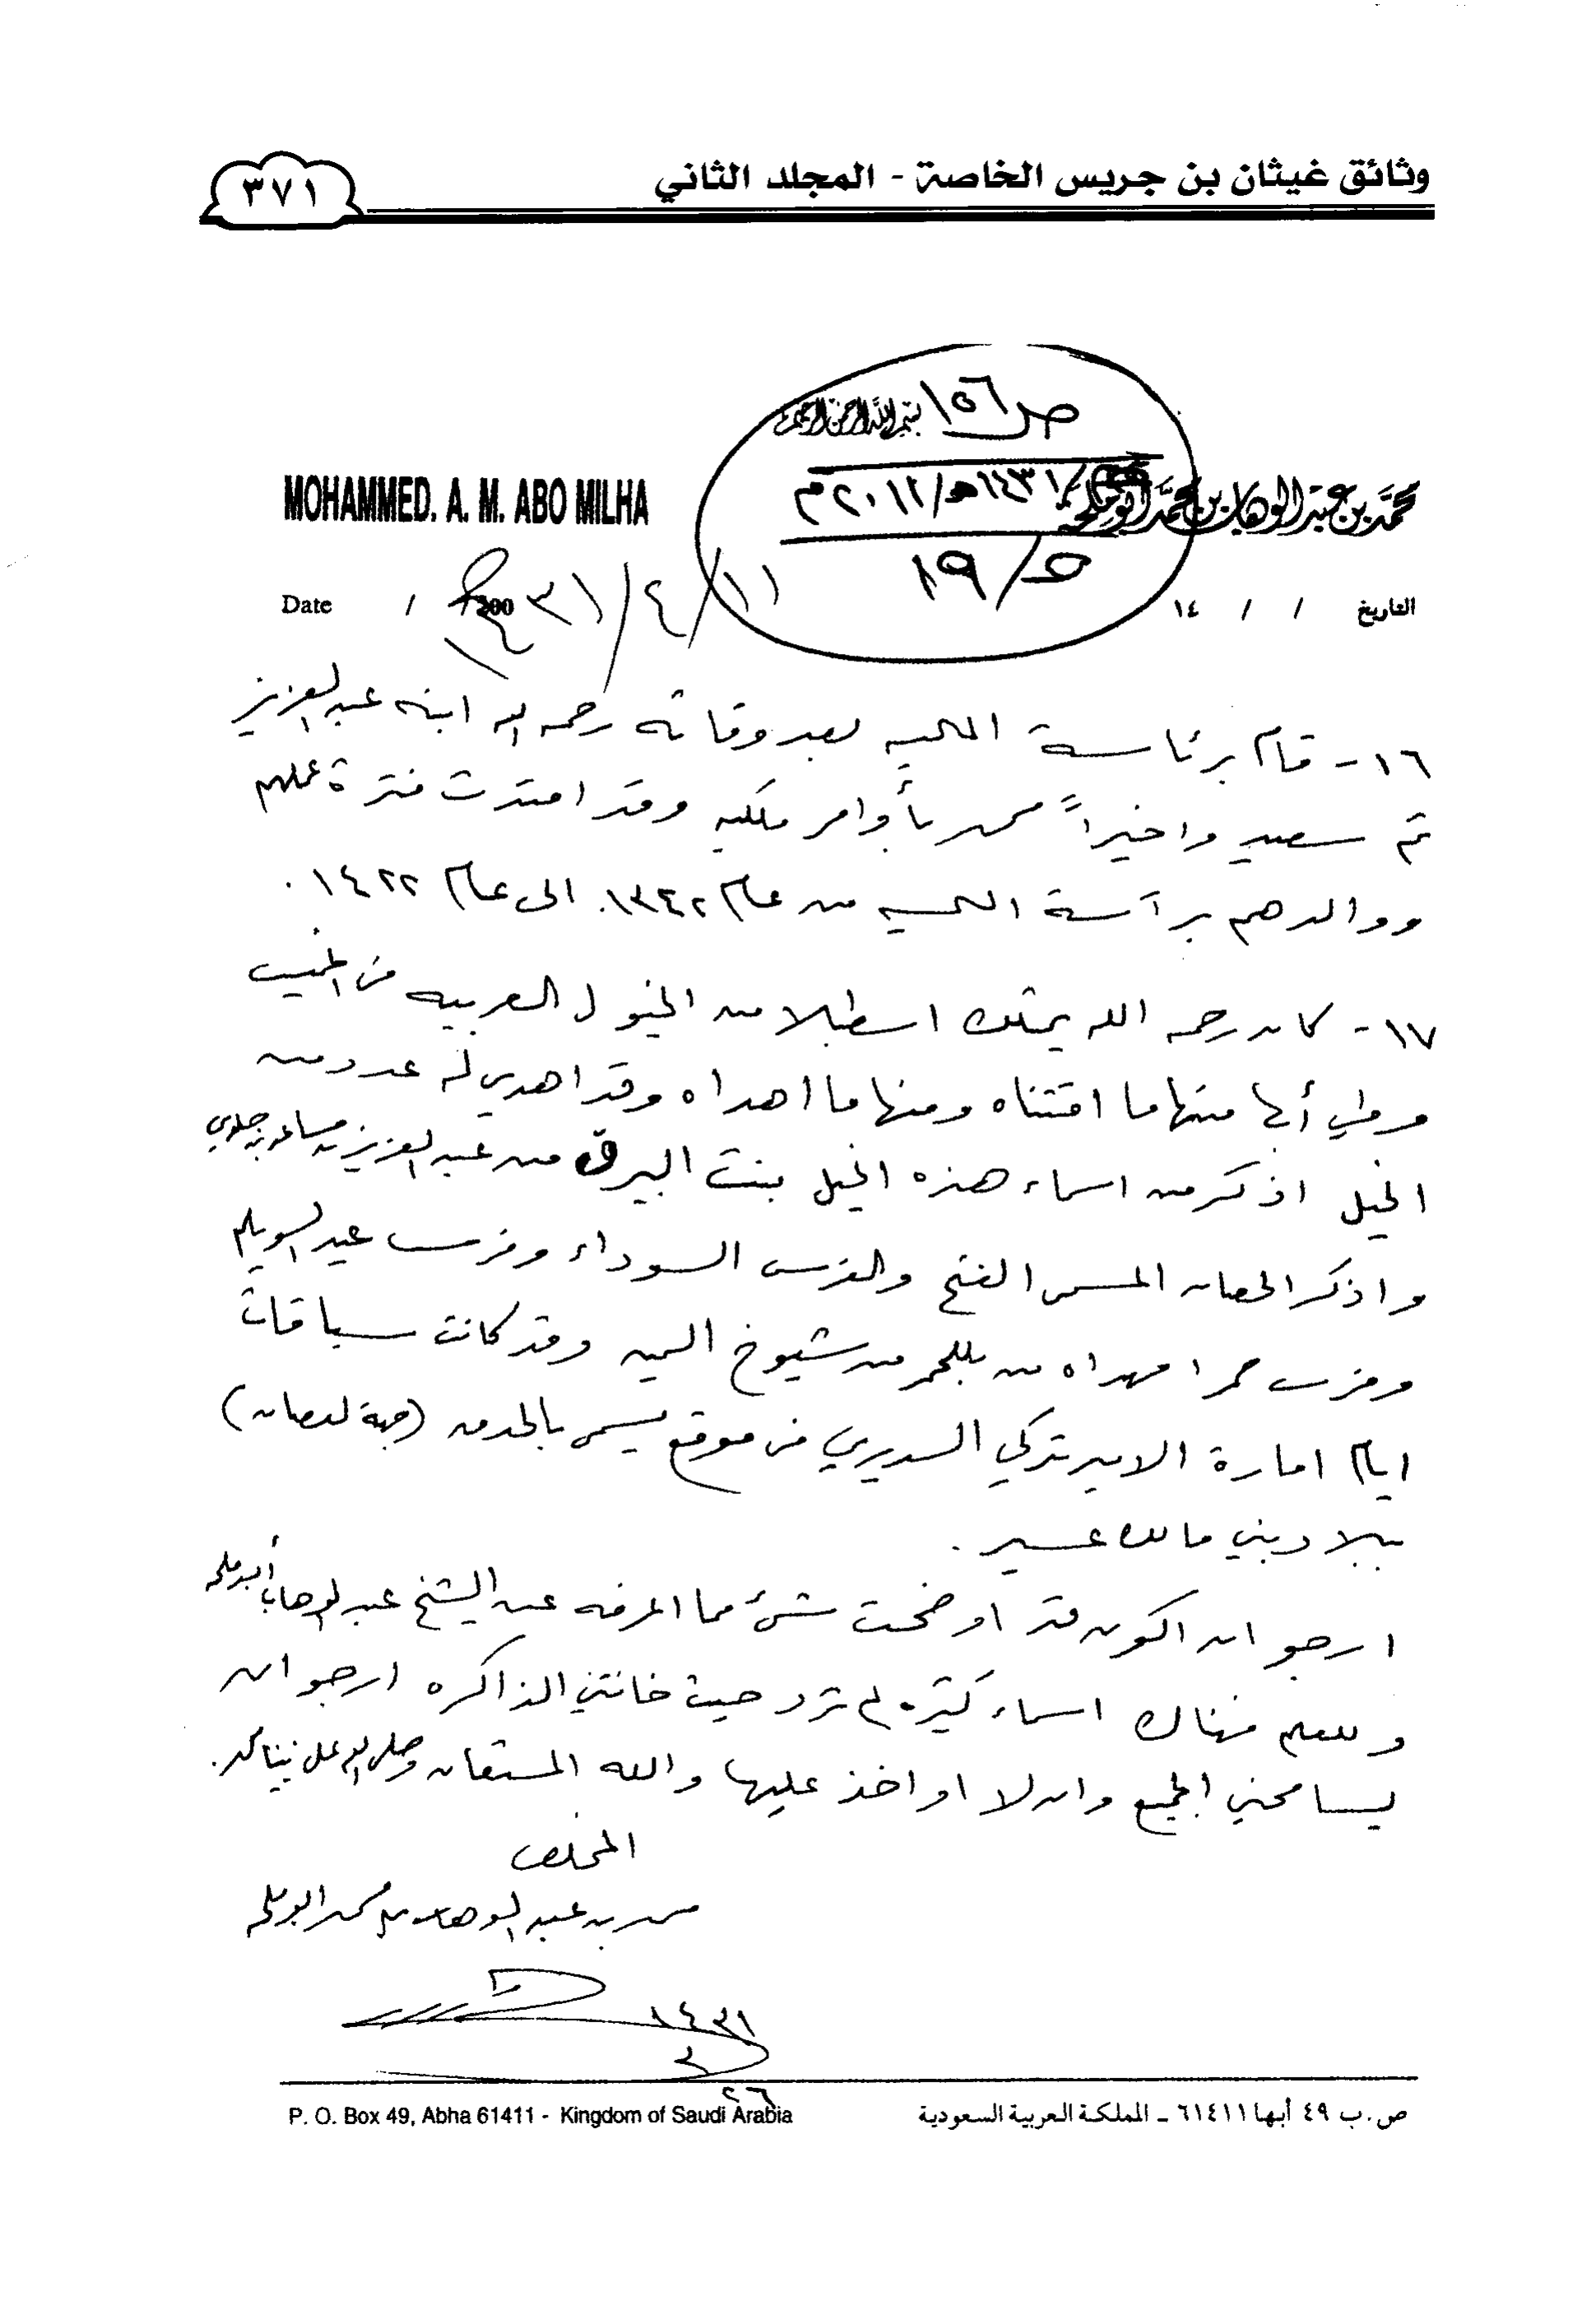 وثائق غيثان بن جريس الخاصة - المجلد الثاني
٣٧١
ص ١٥٦
بسم الله الرحمن الرحيم
MOHAMMED. A. M. ABO MILHA
محمد بن عبد الوهاب بن محمد أبو ملحه
١٤٣١هـ/٢٠١١م
١٩/٥
التاريخ / / ١٤
١١/٤/١٤٣١
Date / / 200
١٦- قام برئاسة الماليه بعد وفاته رحمه الله ابنه عبد العزيز
ثم سعيد واخيراً محمد بأوامر ملكيه وقد امتدت فترة عملهم
ووالدهم برآسة الماليه من عام ١٣٤٢ الى عام ١٤٢٢ .
١٧- كان رحمه الله يمتلك اسطبلا من الخيول العربيه في الخميس
وفي أبها منها ما اقتناه ومنها ما اهداه وقد اهدي له عدد من
الخيل اذكر من اسماء هذه الخيل بنت البرق من عبد العزيز بن مساعد بن جلوي
واذكر الحصان المسمى الفتح والفرس السوداء وفرس عبد السويلم
وفرس حمرا مهداه من بللحمر من شيوخ اليمن وقد كانت سباقات
ايام امارة الامير تركي السديري في موقع يسمى (جهة لعصان)
ببلاد بني مالك عسير .
ارجو ان اكون قد اوضحت شئ مما اعرفه عن الشيخ عبد الوهاب أبو ملحه
وللعلم فهناك اسماء كثيره لم ترد حيث خانتني الذاكره ارجو ان
يسامحني الجميع وان لا اواخذ عليها والله المستعان وصلى الله على نبينا محمد .
المخلص
محمد بن عبد الوهاب بن محمد ابو ملحه
١٤٣١
٣
٢٦
P. O. Box 49, Abha 61411 - Kingdom of Saudi Arabia
ص . ب ٤٩ أبها ٦١٤١١ - المملكة العربية السعودية